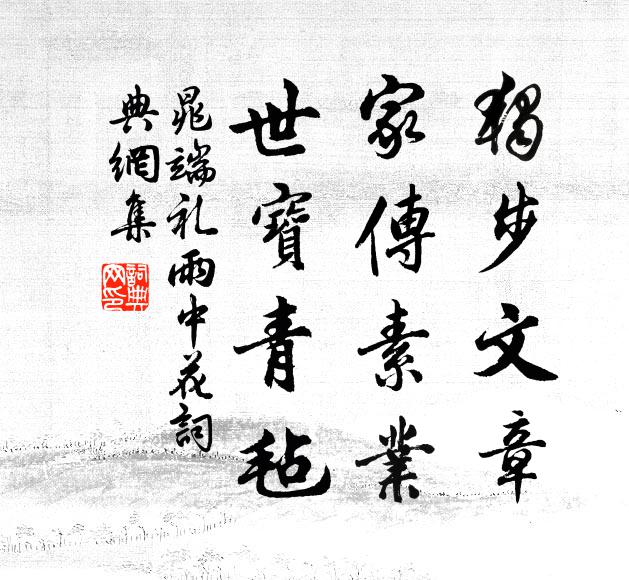 獨步文章
家傳素業
世寶青毡
晁端礼雨中花詞
典網集
詞典网印